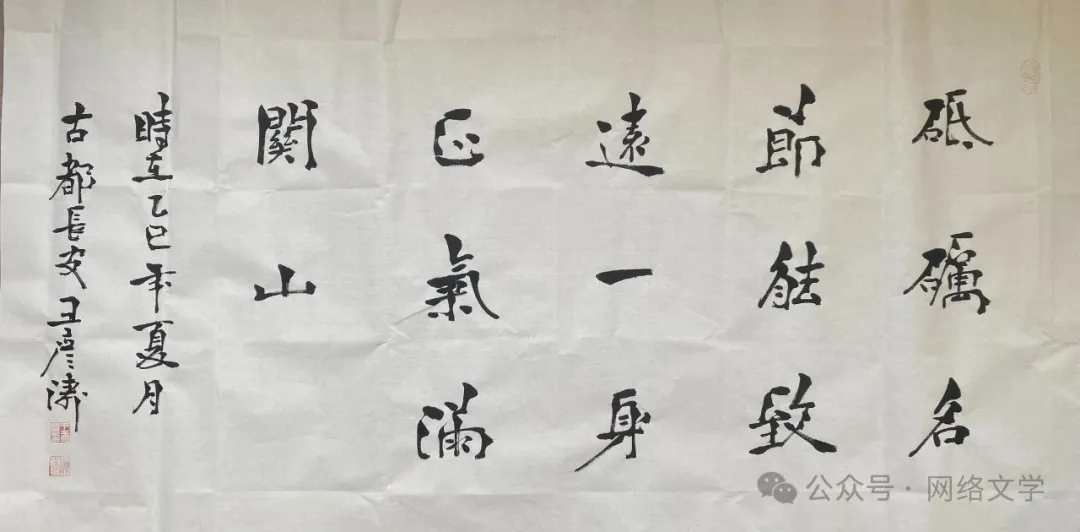 砥礪名
節能致
遠一身
正氣滿
關山
時在乙巳年夏月
古都長安王彦濤
公众号·网络文学